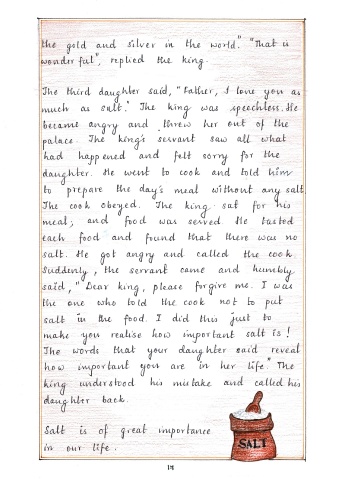 the gold and silver in the world." "That is
wonderful", replied the king.
The third daughter said, "Father, I love you as
much as salt." The king was speechless. He
became angry and threw her out of the
palace. The king's servant saw all what
had happened and felt sorry for the
daughter. He went to cook and told him
to prepare the day's meal without any salt
The cook obeyed. The king sat for his
meal; and food was served. He tasted
each food and found that there was no
salt. He got angry and called the cook.
Suddenly, the servant came and humbly
said, "Dear king, please forgive me. I was
the one who told the cook not to put
salt in the food. I did this just to
make you realise how important salt is!
The words that your daughter said reveal
how important you are in her life." The
king understood his mistake and called his
daughter back.
Salt is of great importance
in our life.
SALT